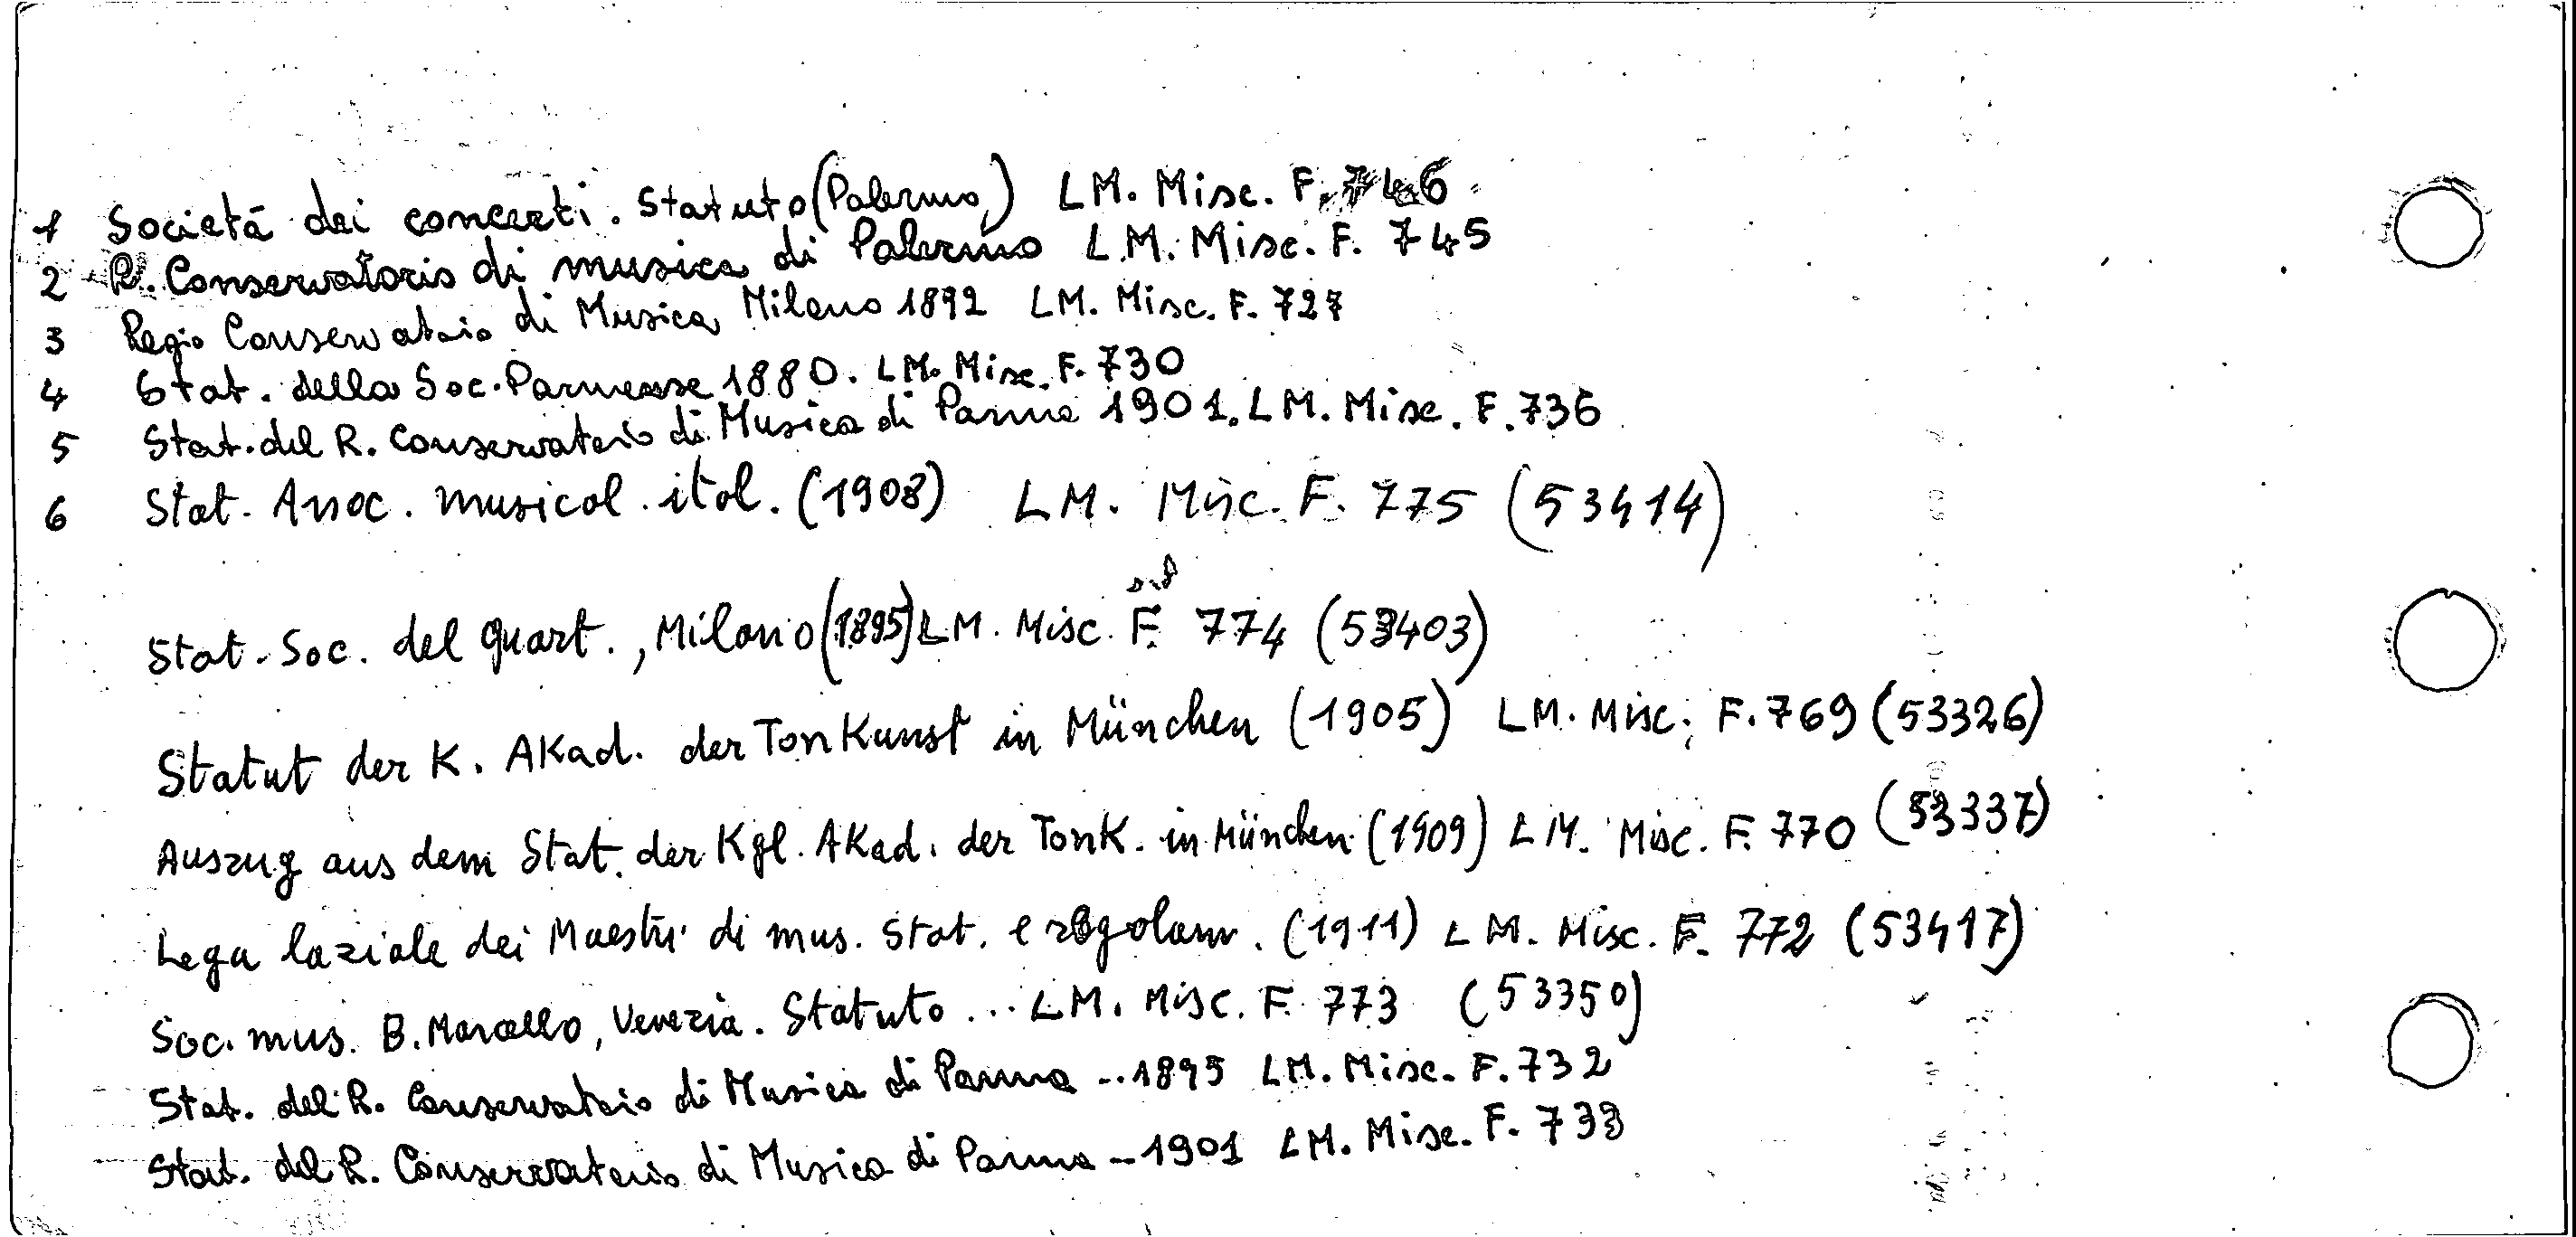 1 Società dei concerti. Statuto (Palermo) LM. Misc. F. 746
2 R. Conservatorio di musica di Palermo L.M. Misc. F. 745
3 Regio Conservatorio di Musica Milano 1892 LM. Misc. F. 727
4 Stat. della Soc. Parmense 1880. LM. Misc. F. 730
5 Stat. del R. Conservatorio di Musica di Parma 1901. LM. Misc. F. 736
6 Stat. Assoc. musicol. ital. (1908) LM. Misc. F. 775 (53414)
Stat. Soc. del Quart., Milano (1895) LM. Misc. F. 774 (53403)
Statut der K. Akad. der Tonkunst in München (1905) LM. Misc. F. 769 (53326)
Auszug aus dem Stat. der Kgl. Akad. der Tonk. in München (1909) LM. Misc. F. 770 (53337)
Lega laziale dei Maestri di mus. Stat. e regolam. (1911) LM. Misc. F. 772 (53417)
Soc. mus. B. Marcello, Venezia. Statuto ... LM. Misc. F. 773 (53350)
Stat. del R. Conservatorio di Musica di Parma -.. 1895 LM. Misc. F. 732
Stat. del R. Conservatorio di Musica di Parma -- 1901 LM. Misc. F. 733